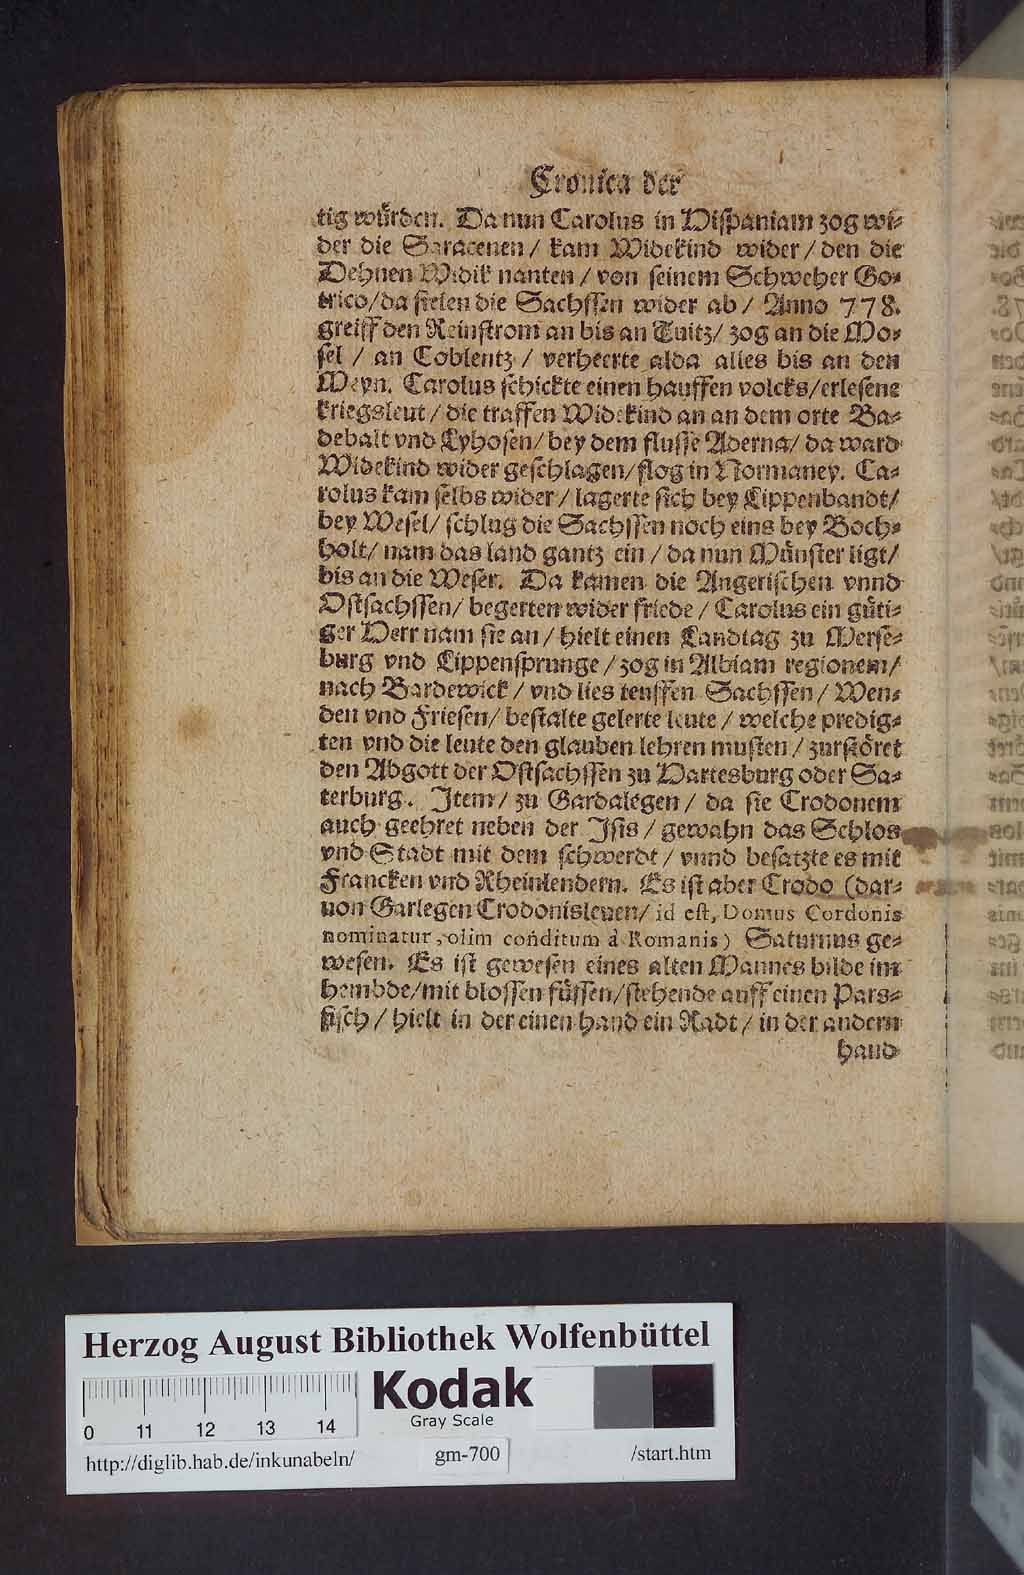 Cronica der
tig würden. Da nun Carolus in Hispaniam zog wi-
der die Saracenen/ kam Widekind wider/ den die
Dehnen Widik nanten/ von seinem Schweher Go-
trico/ da fielen die Sachssen wider ab/ Anno 778.
greiff den Reinstrom an bis an Tuitz/ zog an die Mo-
sel/ an Coblentz/ verheerte alda alles bis an den
Meyn. Carolus schickte einen hauffen volcks/ erlesene
kriegsleut/ die traffen Widekind an an dem orte Ba-
debalt vnd Lyhosen/ bey dem flusse Aderna/ da ward
Widekind wider geschlagen/ flog in Normaney. Ca-
rolus kam selbs wider/ lagerte sich bey Lippenbandt/
bey Wesel/ schlug die Sachssen noch eins bey Boch-
holt/ nam das land gantz ein/ da nun Münster ligt/
bis an die Weser. Da kamen die Angerischen vnnd
Ostsachssen/ begerten wider friede/ Carolus ein güti-
ger Herr nam sie an/ hielt einen Landtag zu Merse-
burg vnd Lippensprunge/ zog in Albiam regionem/
nach Bardewick/ vnd lies teuffen Sachssen/ Wen-
den vnd Friesen/ bestalte gelerte leute/ welche predig-
ten vnd die leute den glauben lehren musten/ zurstöret
den Abgott der Ostsachssen zu Hartesburg oder Sa-
terburg. Item/ zu Gardalegen/ da sie Crodonem
auch geehret neben der Isis/ gewahn das Schlos
vnd Stadt mit dem schwerdt/ vnnd besatzte es mit
Francken vnd Rheinlendern. Es ist aber Crodo (dar-
uon Garlegen Crodonisleuen/ id est, Domus Cordonis
nominatur, olim conditum à Romanis) Saturnus ge-
wesen. Es ist gewesen eines alten Mannes bilde im
hembde/ mit blossen füssen/ stehende auff einen Pars-
fisch/ hielt in der einen hand ein Radt/ in der andern
hand
Herzog August Bibliothek Wolfenbüttel
Kodak
Gray Scale
0 11 12 13 14
http://diglib.hab.de/inkunabeln/ gm-700 /start.htm